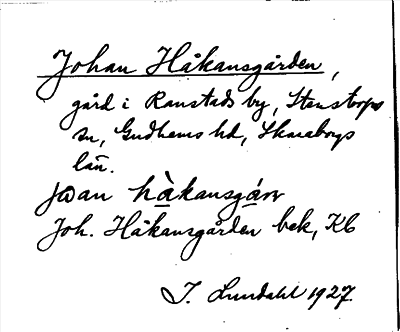 Johan Håkansgården,
gård i Ranstads by, Stenstorps
sn, Gudhems hd, Skaraborgs
län.
jωan hàkansgáɹv
Joh. Håkansgården bek, Kb
I. Lundahl 1927